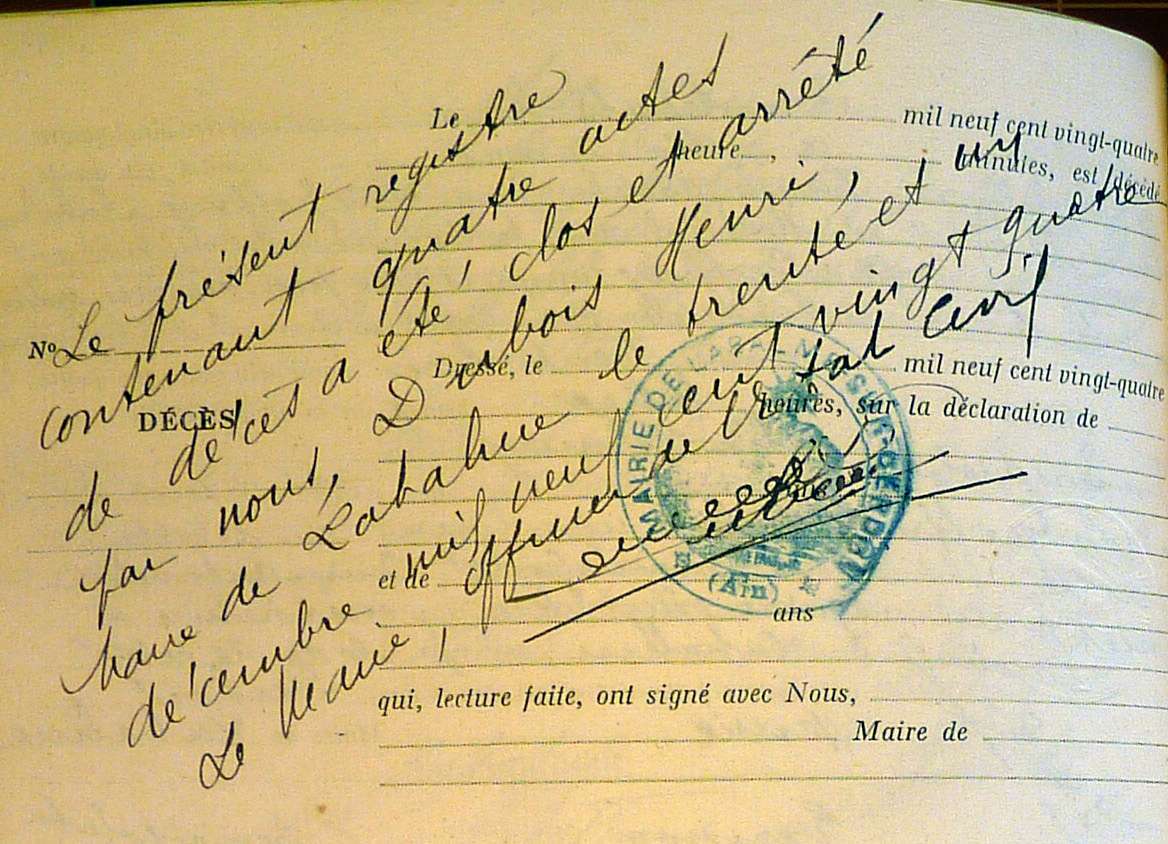 Le présent registre
contenant quatre actes
de décès a été clos et arrêté
par nous, Dubois Henri,
maire de Labalme le trente et un
décembre mil neuf cent vingt quatre
Le Maire, officier de l'état civil
Le mil neuf cent vingt-quatre
heure , minutes, est décédé
No
DÉCÈS
Dressé, le mil neuf cent vingt-quatre
heures, sur la déclaration de
et de
ans
qui, lecture faite, ont signé avec Nous,
Maire de
MAIRIE DE LABALME SUR CERDON
(Ain)